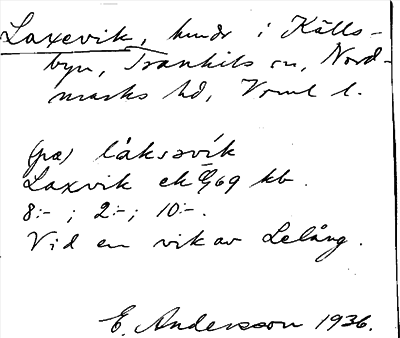 Laxevik, hmdr i Källs-
byn, Trankils sn, Nord-
marks hd, Vrml l.
(pa) låksəvík
Laxvik ek 69 kb.
8:- ; 2:- ; 10:-.
Vid en vik av Lelång.
E. Andersson 1936.